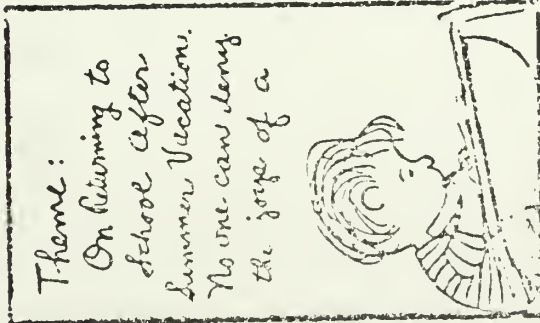 Theme:
On Returning to
School After
Summer Vacation.
No one can deny
the joys of a